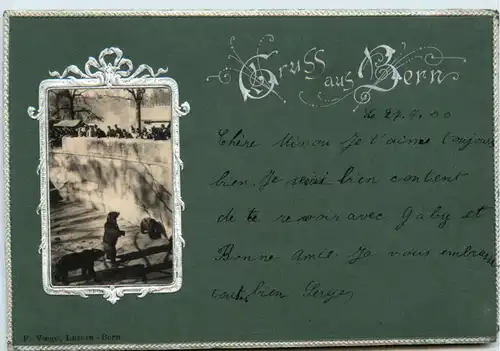 Gruss aus Bern
le 27.9.00
Chère Minou Je t'aime toujours
bien. Je suis bien content
de te revoir avec Gaby et
Bonne Amie. Je vous embrasse
tout bien Serge,
F. Vaegt, Luzern-Bern.